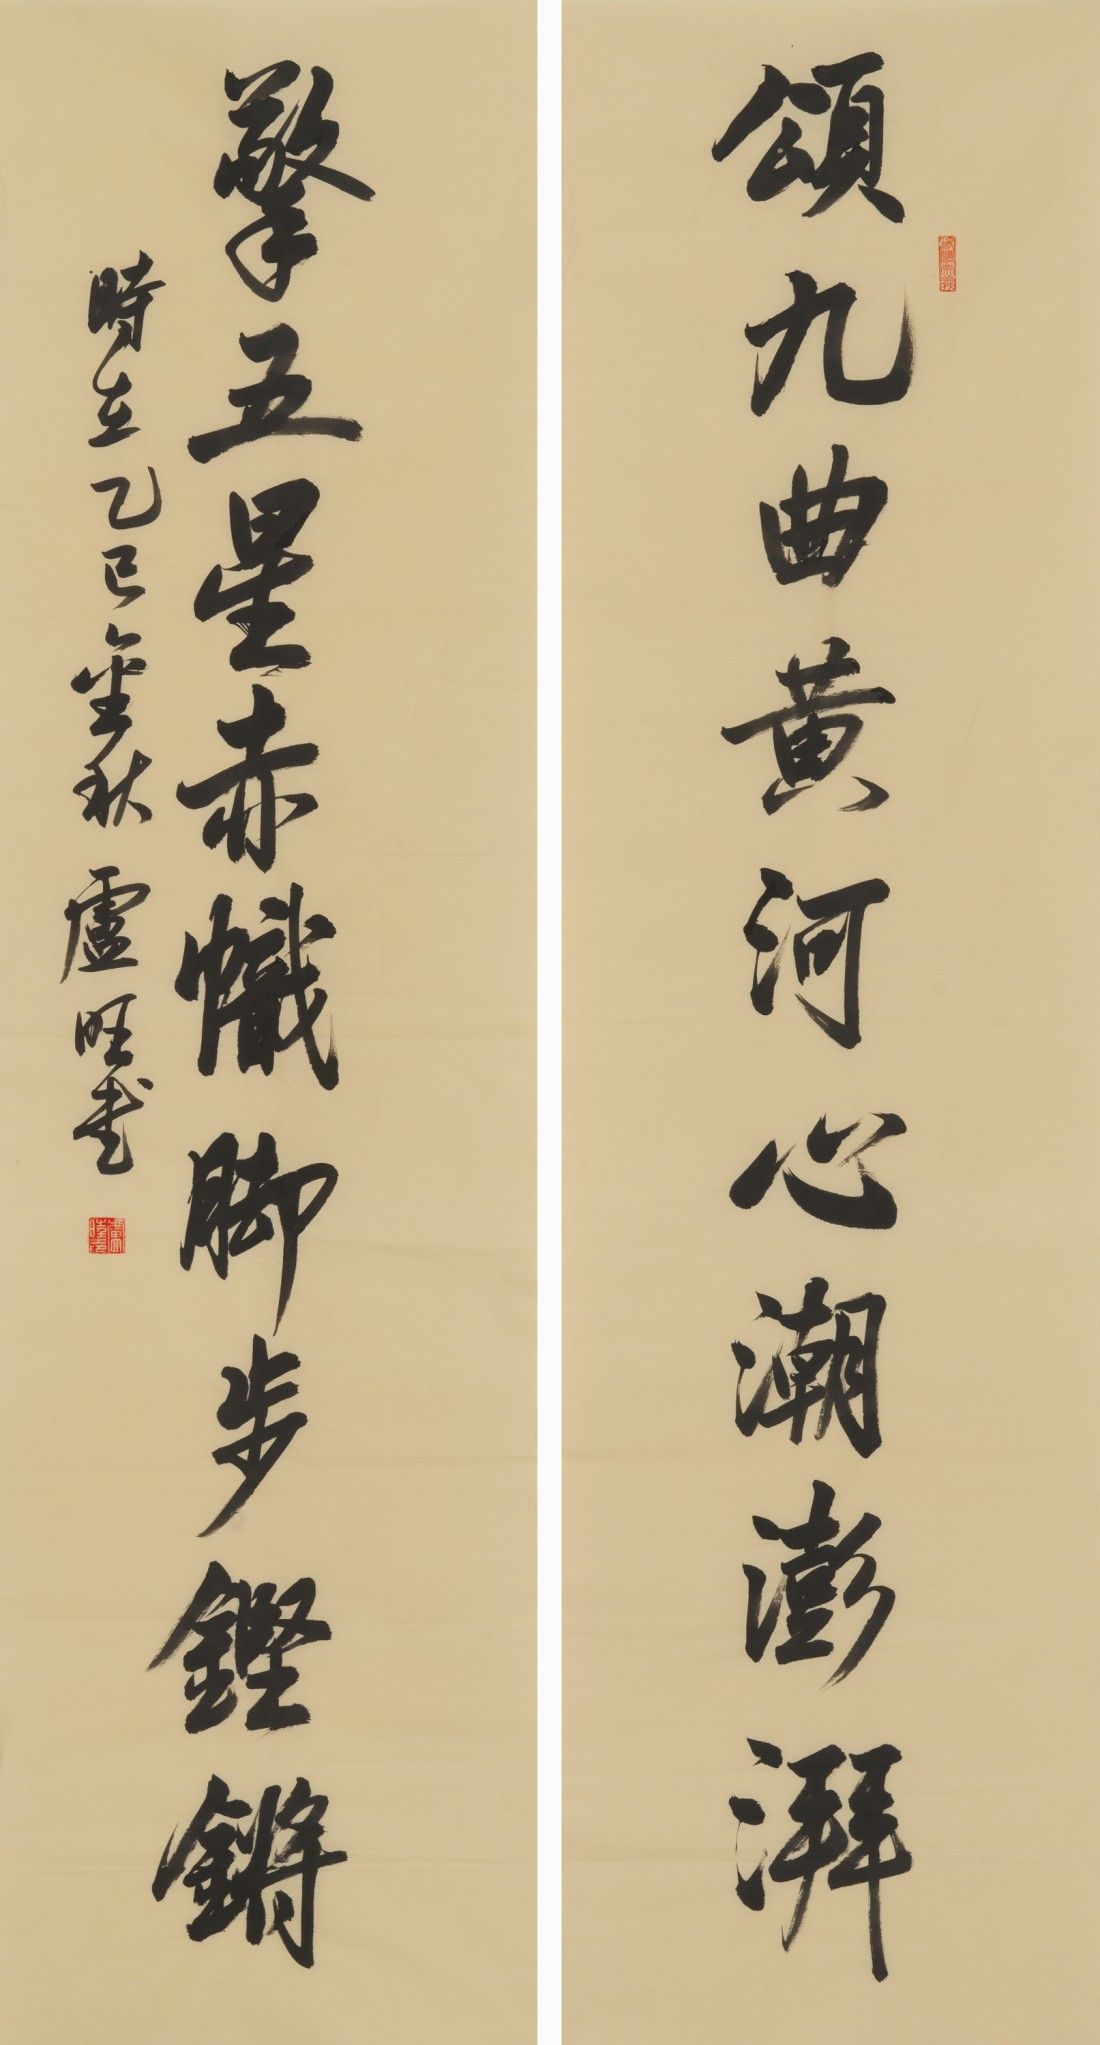 頌九曲黄河心潮澎湃
擎五星赤幟脚步鏗鏘
時在乙巳金秋盧旺書